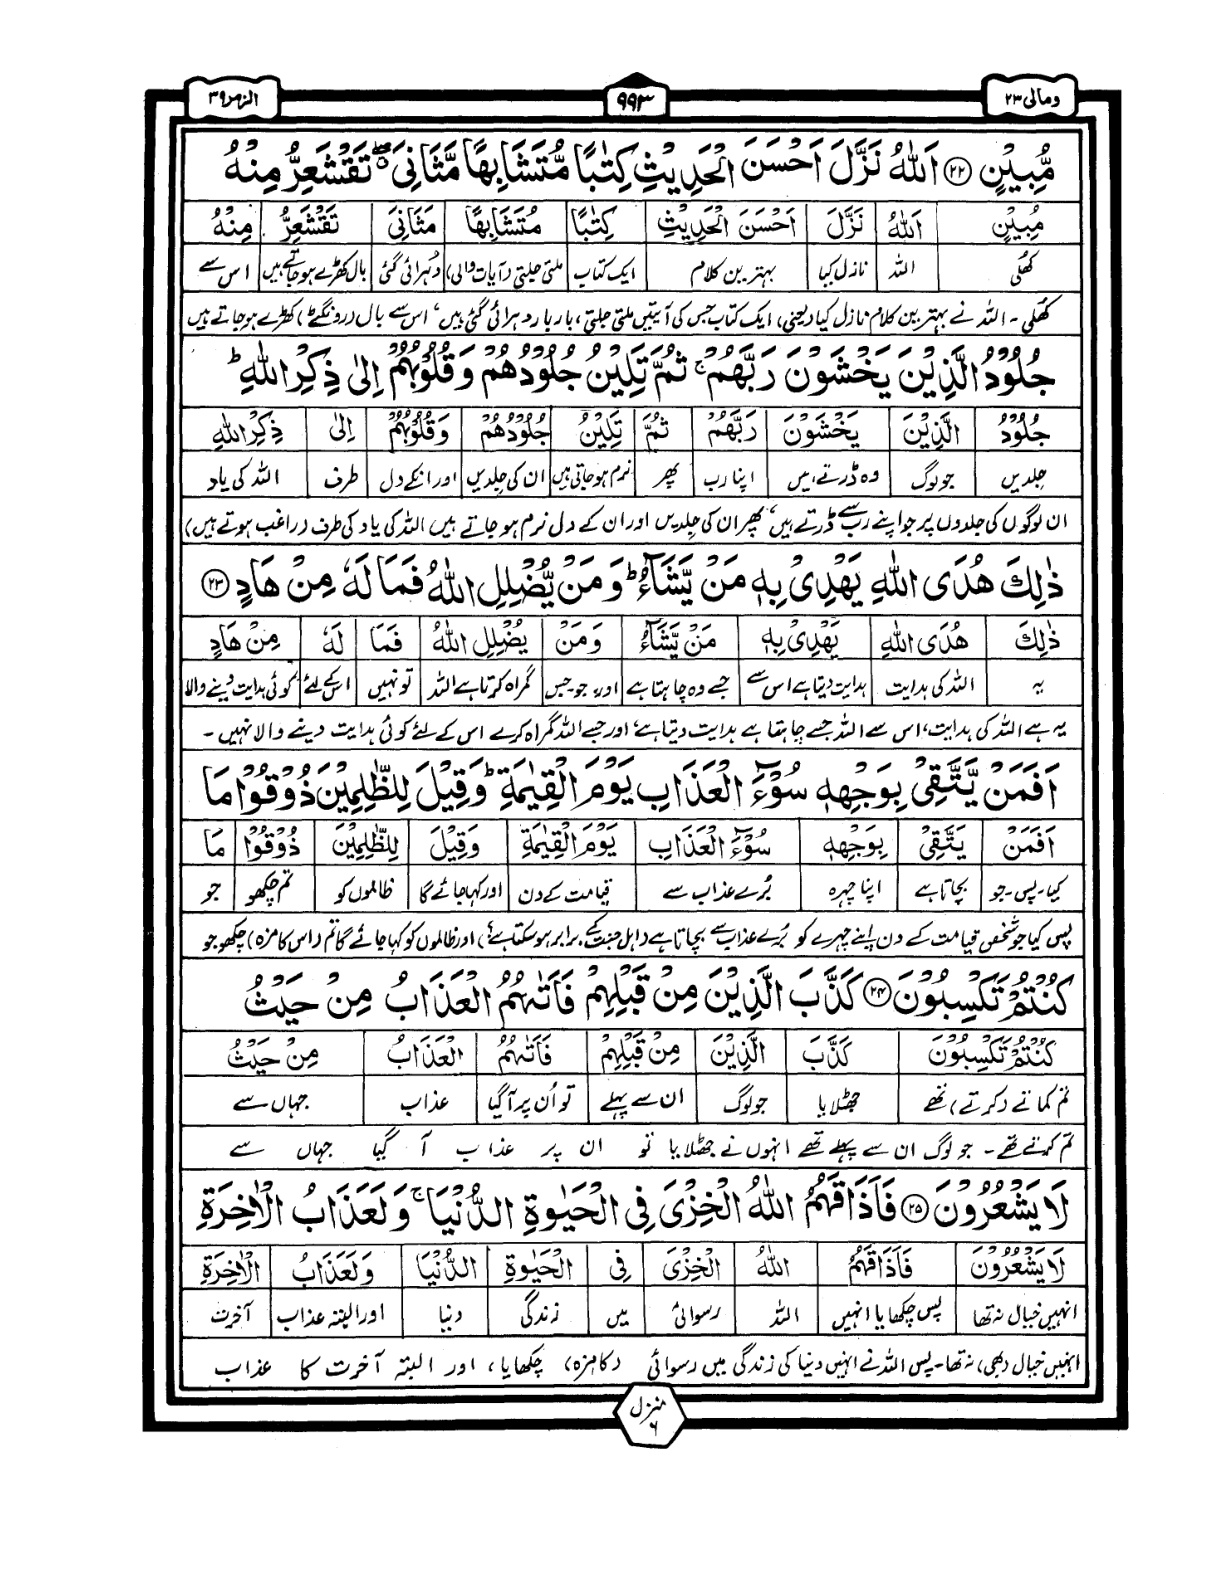 ومالی ۲۳
۹۹۳
الزمر ۳۹
مُّبِیْنٍ ﴿۲۲﴾ اَللّٰهُ نَزَّلَ اَحْسَنَ الْحَدِیْثِ كِتٰبًا مُّتَشَابِهًا مَّثَانِیَ ۖ تَقْشَعِرُّ مِنْهُ
مُبِیْنٍ اَللّٰهُ نَزَّلَ اَحْسَنَ الْحَدِیْثِ كِتٰبًا مُتَشَابِهًا مَثَانِیَ تَقْشَعِرُّ مِنْهُ
کھلی اللہ نازل کیا بہترین کلام ایک کتاب ملتی جلتی (آیات والی) دہرائی گئی بال کھڑے ہوجاتے ہیں اس سے
کھلی۔ اللہ نے بہترین کلام نازل کیا (یعنی) ایک کتاب جس کی آیتیں ملتی جلتی، بار بار دہرائی گئی ہیں، اس سے بال (رونگٹے) کھڑے ہوجاتے ہیں
جُلُوْدُ الَّذِیْنَ یَخْشَوْنَ رَبَّهُمْ ۚ ثُمَّ تَلِیْنُ جُلُوْدُهُمْ وَقُلُوْبُهُمْ اِلٰی ذِكْرِ اللّٰهِ ؕ
جُلُوْدُ الَّذِیْنَ یَخْشَوْنَ رَبَّهُمْ ثُمَّ تَلِیْنُ جُلُوْدُهُمْ وَقُلُوْبُهُمْ اِلٰی ذِكْرِ اللّٰهِ
جلدیں جو لوگ وہ ڈرتے ہیں اپنا رب پھر نرم ہوجاتی ہیں ان کی جلدیں اور انکے دل طرف اللہ کی یاد
ان لوگوں کی جلدوں پر جو اپنے رب سے ڈرتے ہیں، پھر ان کی جلدیں اور ان کے دل نرم ہو جاتے ہیں اللہ کی یاد کی طرف (راغب ہوتے ہیں)
ذٰلِكَ هُدَی اللّٰهِ یَهْدِیْ بِهٖ مَنْ یَّشَآءُ ؕ وَمَنْ یُّضْلِلِ اللّٰهُ فَمَا لَهٗ مِنْ هَادٍ ﴿۲۳﴾
ذٰلِكَ هُدَی اللّٰهِ یَهْدِیْ بِهٖ مَنْ یَّشَآءُ وَمَنْ یُضْلِلِ اللّٰهُ فَمَا لَهٗ مِنْ هَادٍ
یہ اللہ کی ہدایت ہدایت دیتا ہے اس سے جسے وہ چاہتا ہے اور جو۔جس گمراہ کرتا ہے اللہ تو نہیں اس کے لئے کوئی ہدایت دینے والا
یہ ہے اللہ کی ہدایت، اس سے اللہ جسے چاہتا ہے ہدایت دیتا ہے، اور جسے اللہ گمراہ کرے اس کے لئے کوئی ہدایت دینے والا نہیں۔
اَفَمَنْ یَّتَّقِیْ بِوَجْهِهٖ سُوْٓءَ الْعَذَابِ یَوْمَ الْقِیٰمَةِ ؕ وَقِیْلَ لِلظّٰلِمِیْنَ ذُوْقُوْا مَا
اَفَمَنْ یَتَّقِیْ بِوَجْهِهٖ سُوْٓءَ الْعَذَابِ یَوْمَ الْقِیٰمَةِ وَقِیْلَ لِلظّٰلِمِیْنَ ذُوْقُوْا مَا
کیا۔پس۔جو بچاتا ہے اپنا چہرہ بُرے عذاب سے قیامت کے دن اور کہا جائے گا ظالموں کو تم چکھو جو
پس کیا جو شخص قیامت کے دن اپنے چہرے کو بُرے عذاب سے بچاتا ہے (اہل جنت کے برابر ہوسکتا ہے؟) اور ظالموں کو کہا جائے گا تم (اس کا مزہ) چکھو جو
كُنْتُمْ تَكْسِبُوْنَ ﴿۲۴﴾ كَذَّبَ الَّذِیْنَ مِنْ قَبْلِهِمْ فَاَتٰىهُمُ الْعَذَابُ مِنْ حَیْثُ
كُنْتُمْ تَكْسِبُوْنَ كَذَّبَ الَّذِیْنَ مِنْ قَبْلِهِمْ فَاَتٰىهُمُ الْعَذَابُ مِنْ حَیْثُ
تم کماتے (کرتے) تھے جھٹلایا جو لوگ ان سے پہلے تو اُن پر آگیا عذاب جہاں سے
تم کرتے تھے۔ جو لوگ ان سے پہلے تھے انہوں نے جھٹلایا تو ان پر عذاب آ گیا جہاں سے
لَا یَشْعُرُوْنَ ﴿۲۵﴾ فَاَذَاقَهُمُ اللّٰهُ الْخِزْیَ فِی الْحَیٰوةِ الدُّنْیَا ۚ وَلَعَذَابُ الْاٰخِرَةِ
لَا یَشْعُرُوْنَ فَاَذَاقَهُمُ اللّٰهُ الْخِزْیَ فِی الْحَیٰوةِ الدُّنْیَا وَلَعَذَابُ الْاٰخِرَةِ
انہیں خیال نہ تھا پس چکھایا انہیں اللہ رسوائی میں زندگی دنیا اور البتہ عذاب آخرت
انہیں خیال (بھی) نہ تھا۔ پس اللہ نے انہیں دنیا کی زندگی میں رسوائی (کا مزہ) چکھایا، اور البتہ آخرت کا عذاب
منزل ۶